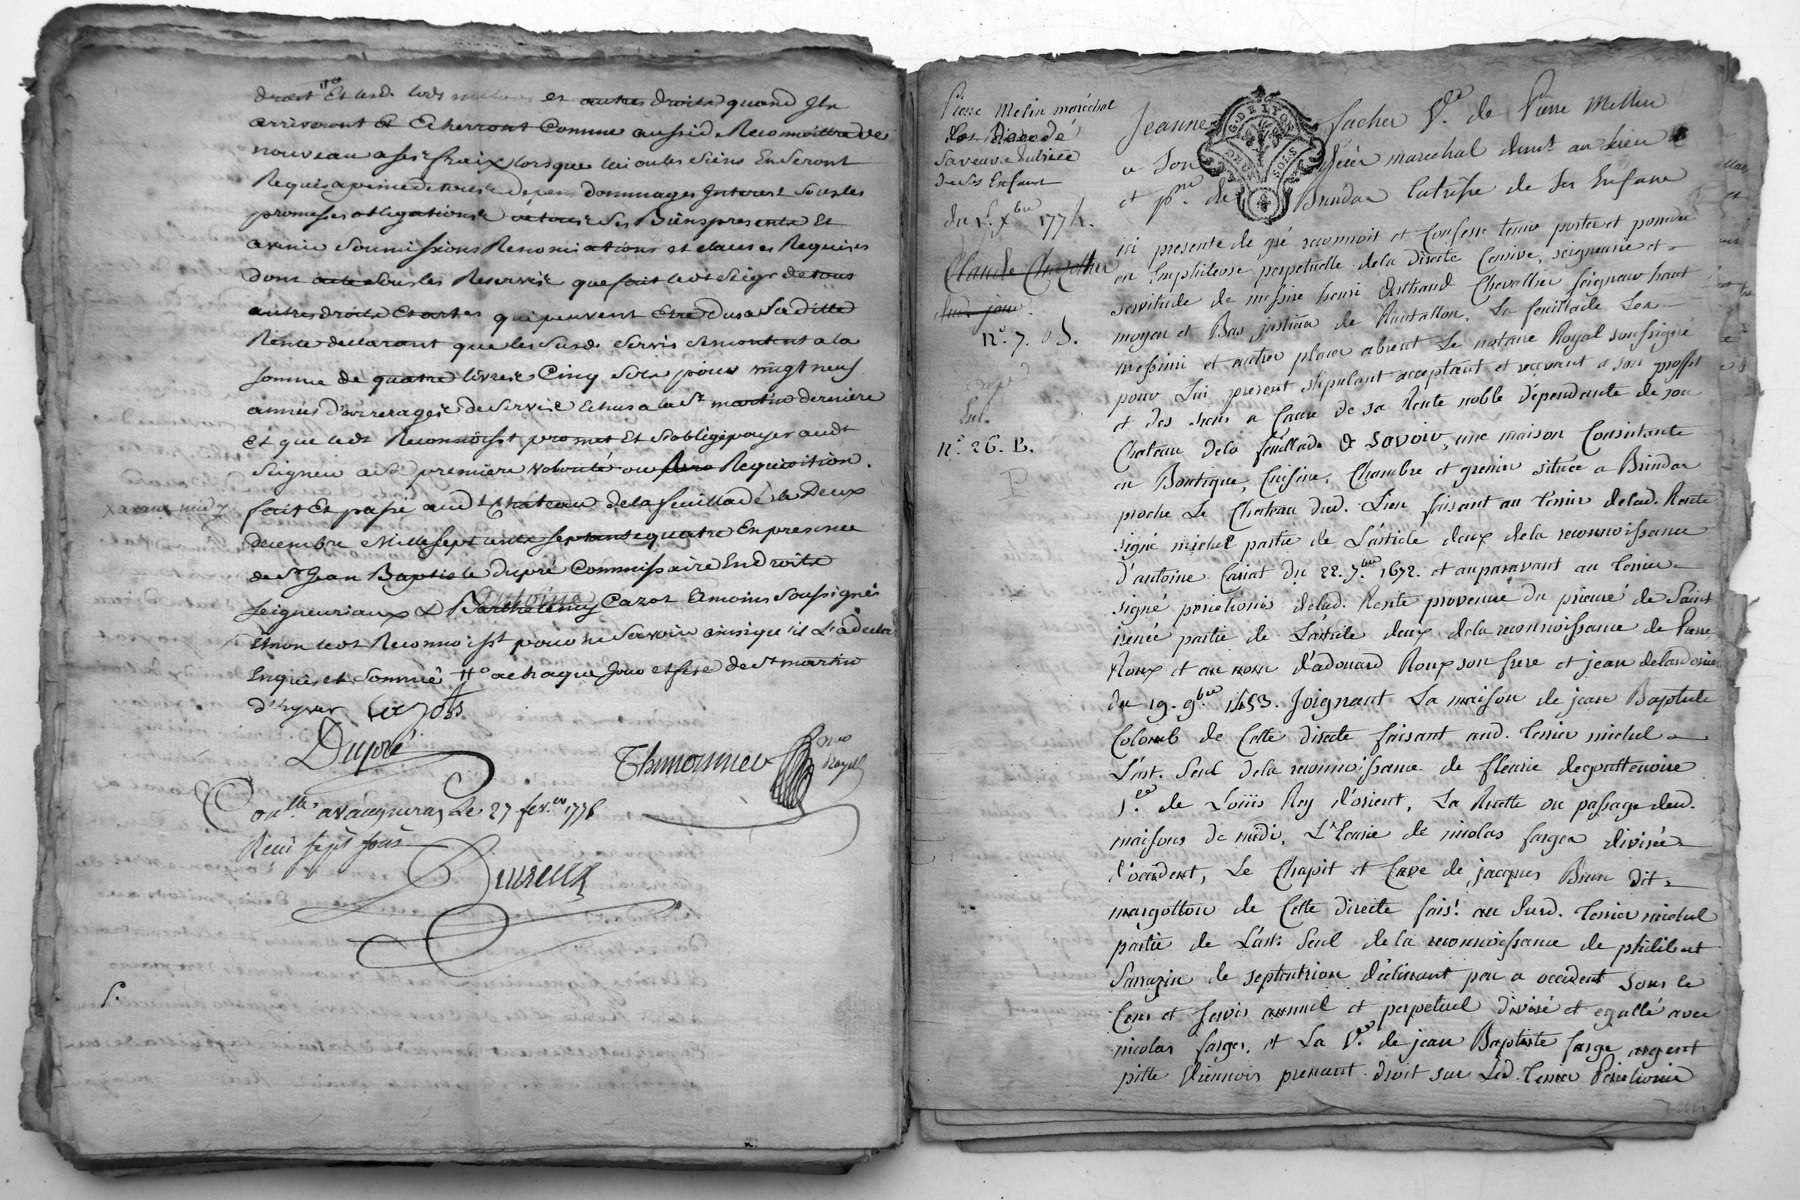 droit Et les. lods et autres droits quand Ils
arriveront Et Echerront Comme aussi de Reconnoittre de
nouveau a ses fraix lorsque lui ou les siens En seront
Requis a peine de tous depens dommages Interest sous les
promesses obligations de tous ses Biens presents Et
avenir Soumissions Renonciations et clauses Requises
dont acte sous les Reserves que fait led Seigr de tous
autres droits Et actes qui peuvent Etre dus a Sa ditte
Rente declarant que les susd. Servis Montent a la
somme de quatre livres Cinq sols pour vingt neuf
années d'arrerages de Servis Echus a la St martin derniere
Et que led Reconnoisst promet Et s'oblige payer audt
Seigneur a sa premiere volonté ou Requisition.
fait Et passé aud Chateau de la feuillade le Deux
x avant midy
decembre Mille sept cents septante quatre En presence
de Sr Jean Baptiste Dupré Commissaire En Droits
Seigneuriaux & Antoine Barthelemy Cazot témoins Soussignés
Et non led Reconnoisst pour ne Sçavoir ainsi qu'il L'a declaré
Enquis et Sommé # a chaque Jour et fete de St martin
d'hyver Cazot
Dupré
Thimonnier Nore Royal
Conlle a vaugneray Le 27 fevr. 1775
Reçu sept sols
S.
Pierre Melin maréchal
Sa veuve Tutrice
de Ses Enfant
du 2. Xbre 1774.
Claude
dud. jour.
N.° 7.
N.° 26. B.
G. DE LYON
DEUX SOLS
Jeanne facher Ve de Pierre Mellin
a son décès marechal demt au Lieu
et pse de Brindas tutrisse de Ses Enfans
ici presente de gré reconnoit et Confesse tenir porter et posseder
en Emphiteose perpetuelle de la Directe Censive, seigneurie et
servitude de messire henri Chevallier seigneur haut
moyen et Bas justicier de Rontallon, La feuillade Ler
messimi et autres places absent Le notaire Royal soussigné
pour Lui present stipulant acceptant et reçevant a son proffit
et des siens a Cause de sa Rente noble dépendante de son
Chateau dela feuillade & Savoir, une maison Consistante
en Boutique, Cuisine, Chambre et grenier située a Brindas
proche Le Chateau dud. Lieu faisant au terrier delad. Rente
signé michel partie de L'article deux dela reconnoissance
d'antoine Cariat du 22. 7bre 1672. et auparavant au terrier
signé delad. Rente provenue du prieuré de Saint
irenée partie de L'article deux dela reconnoissance de Pierre
Roux et au nom d'adouard Roux son frere et jean
du 19. 9bre 1453. Joignant La maison de jean Baptiste
Colomb de Cette directe faisant aud. terrier michel
L'art. Seul dela reconnoissance de fleurie
Ve de Loüis Rey d'orient, La Ruette ou passage desd.
maisons de midi, L'Ecurie de nicolas farges divisée
d'occident, Le Chapit et Cave de jacques Brun dit
margotton de Cette directe fais.t au Susd. terrier michel
partie de L'art. Seul de la reconnoissance de philibert
Sarrazin de septentrion déclinant peu a occident Sous le
Cens et servis annuel et perpetuel divisé et egallé avec
nicolas farges, et La Ve de jean Baptiste farge argent
pitte viennois prenant droit sur Led. terrier